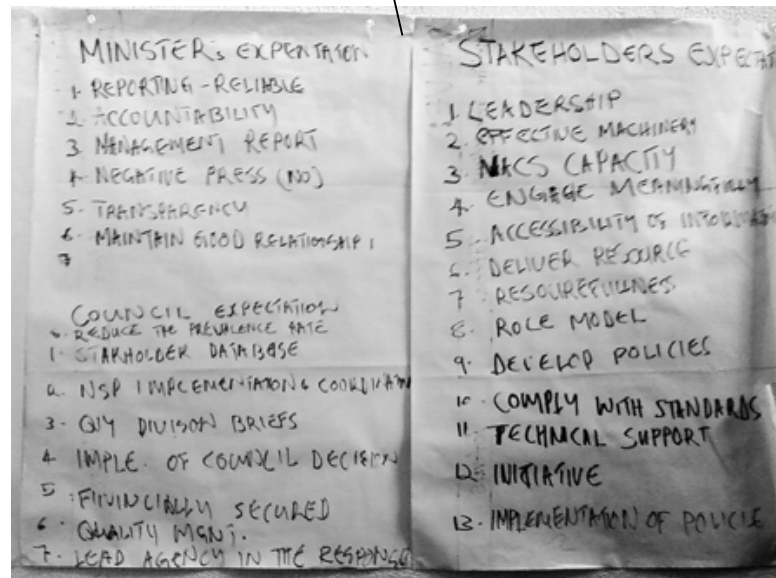 MINISTERs EXPENTATION
1. REPORTING - RELIABLE
2. ACCOUNTABILITY
3. MANAGEMENT REPORT
4. NEGATIVE PRESS (NO)
5. TRANSPARENCY
6. MAINTAIN GOOD RELATIONSHIP
7
COUNCIL EXPECTATION
REDUCE THE PREVALENCE RATE
1. STAKHOLDER DATABASE
NSP IMPLEMENTATION & COORDINATION
3. QLY DIVISON BRIEFS
4. IMPLE. OF COUNCIL DECISION
5. FINANCIALLY SECURED
6. QUALITY MGNT.
7. LEAD AGENCY IN THE RESPONSE
STAKEHOLDERS EXPECTAT
1. LEADERSHIP
2. EFFECTIVE MACHINERY
3. NACS CAPACITY
4. ENGAGE MEANINGFULLY
5. ACCESSIBILITY OF INFORMATION
6. DELIVER RESOURCE
7. RESOUREFULLNESS
8. ROLE MODEL
9. DEVELOP POLICIES
10. COMPLY WITH STANDARDS
11. TECHNICAL SUPPORT
12. INITIATIVE
13. IMPLEMENTATION OF POLICIE